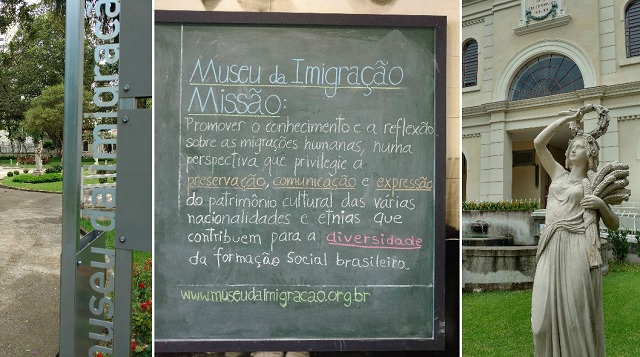 museu da imigração
Museu da Imigração
Missão:
Promover o conhecimento e a reflexão
sobre as migrações humanas, numa
perspectiva que privilegie a
preservação, comunicação e expressão
do patrimônio cultural das várias
nacionalidades e etnias que
contribuem para a diversidade
da formação Social brasileiro.
www.museudaimigracao.org.br